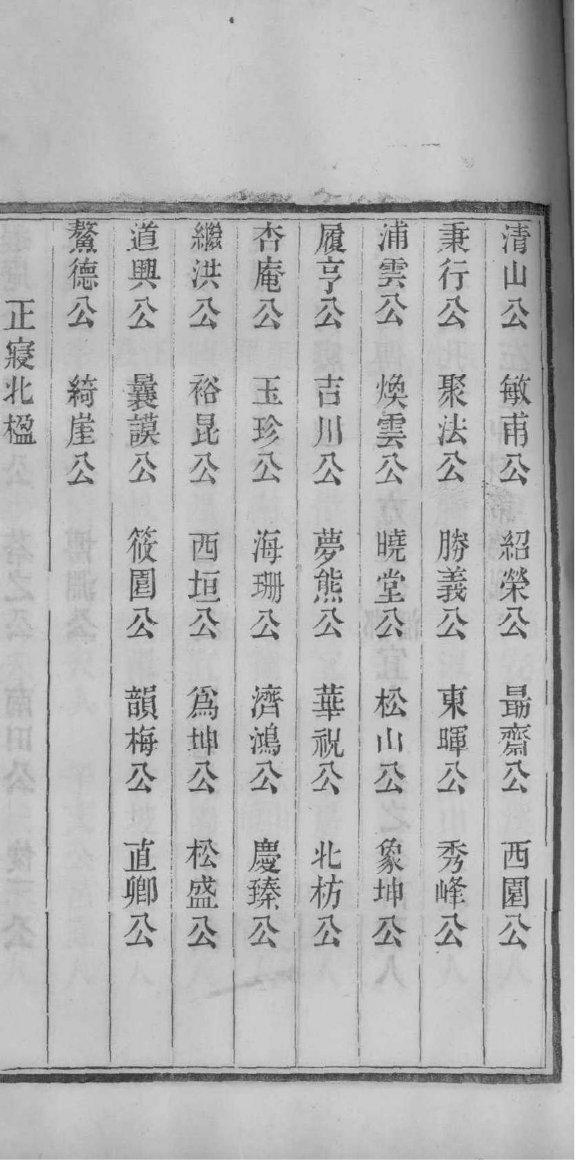 清山公　敏甫公　紹榮公　勗齋公　西園公
秉行公　聚法公　勝義公　東暉公　秀峰公
浦雲公　煥雲公　曉堂公　松山公　象坤公
履亨公　吉川公　夢熊公　華祝公　北枋公
杏庵公　玉珍公　海珊公　濟鴻公　慶臻公
繼洪公　裕昆公　西垣公　爲坤公　松盛公
道興公　曩謨公　筱園公　韻梅公　直卿公
鰲德公　綺崖公
正寢北楹